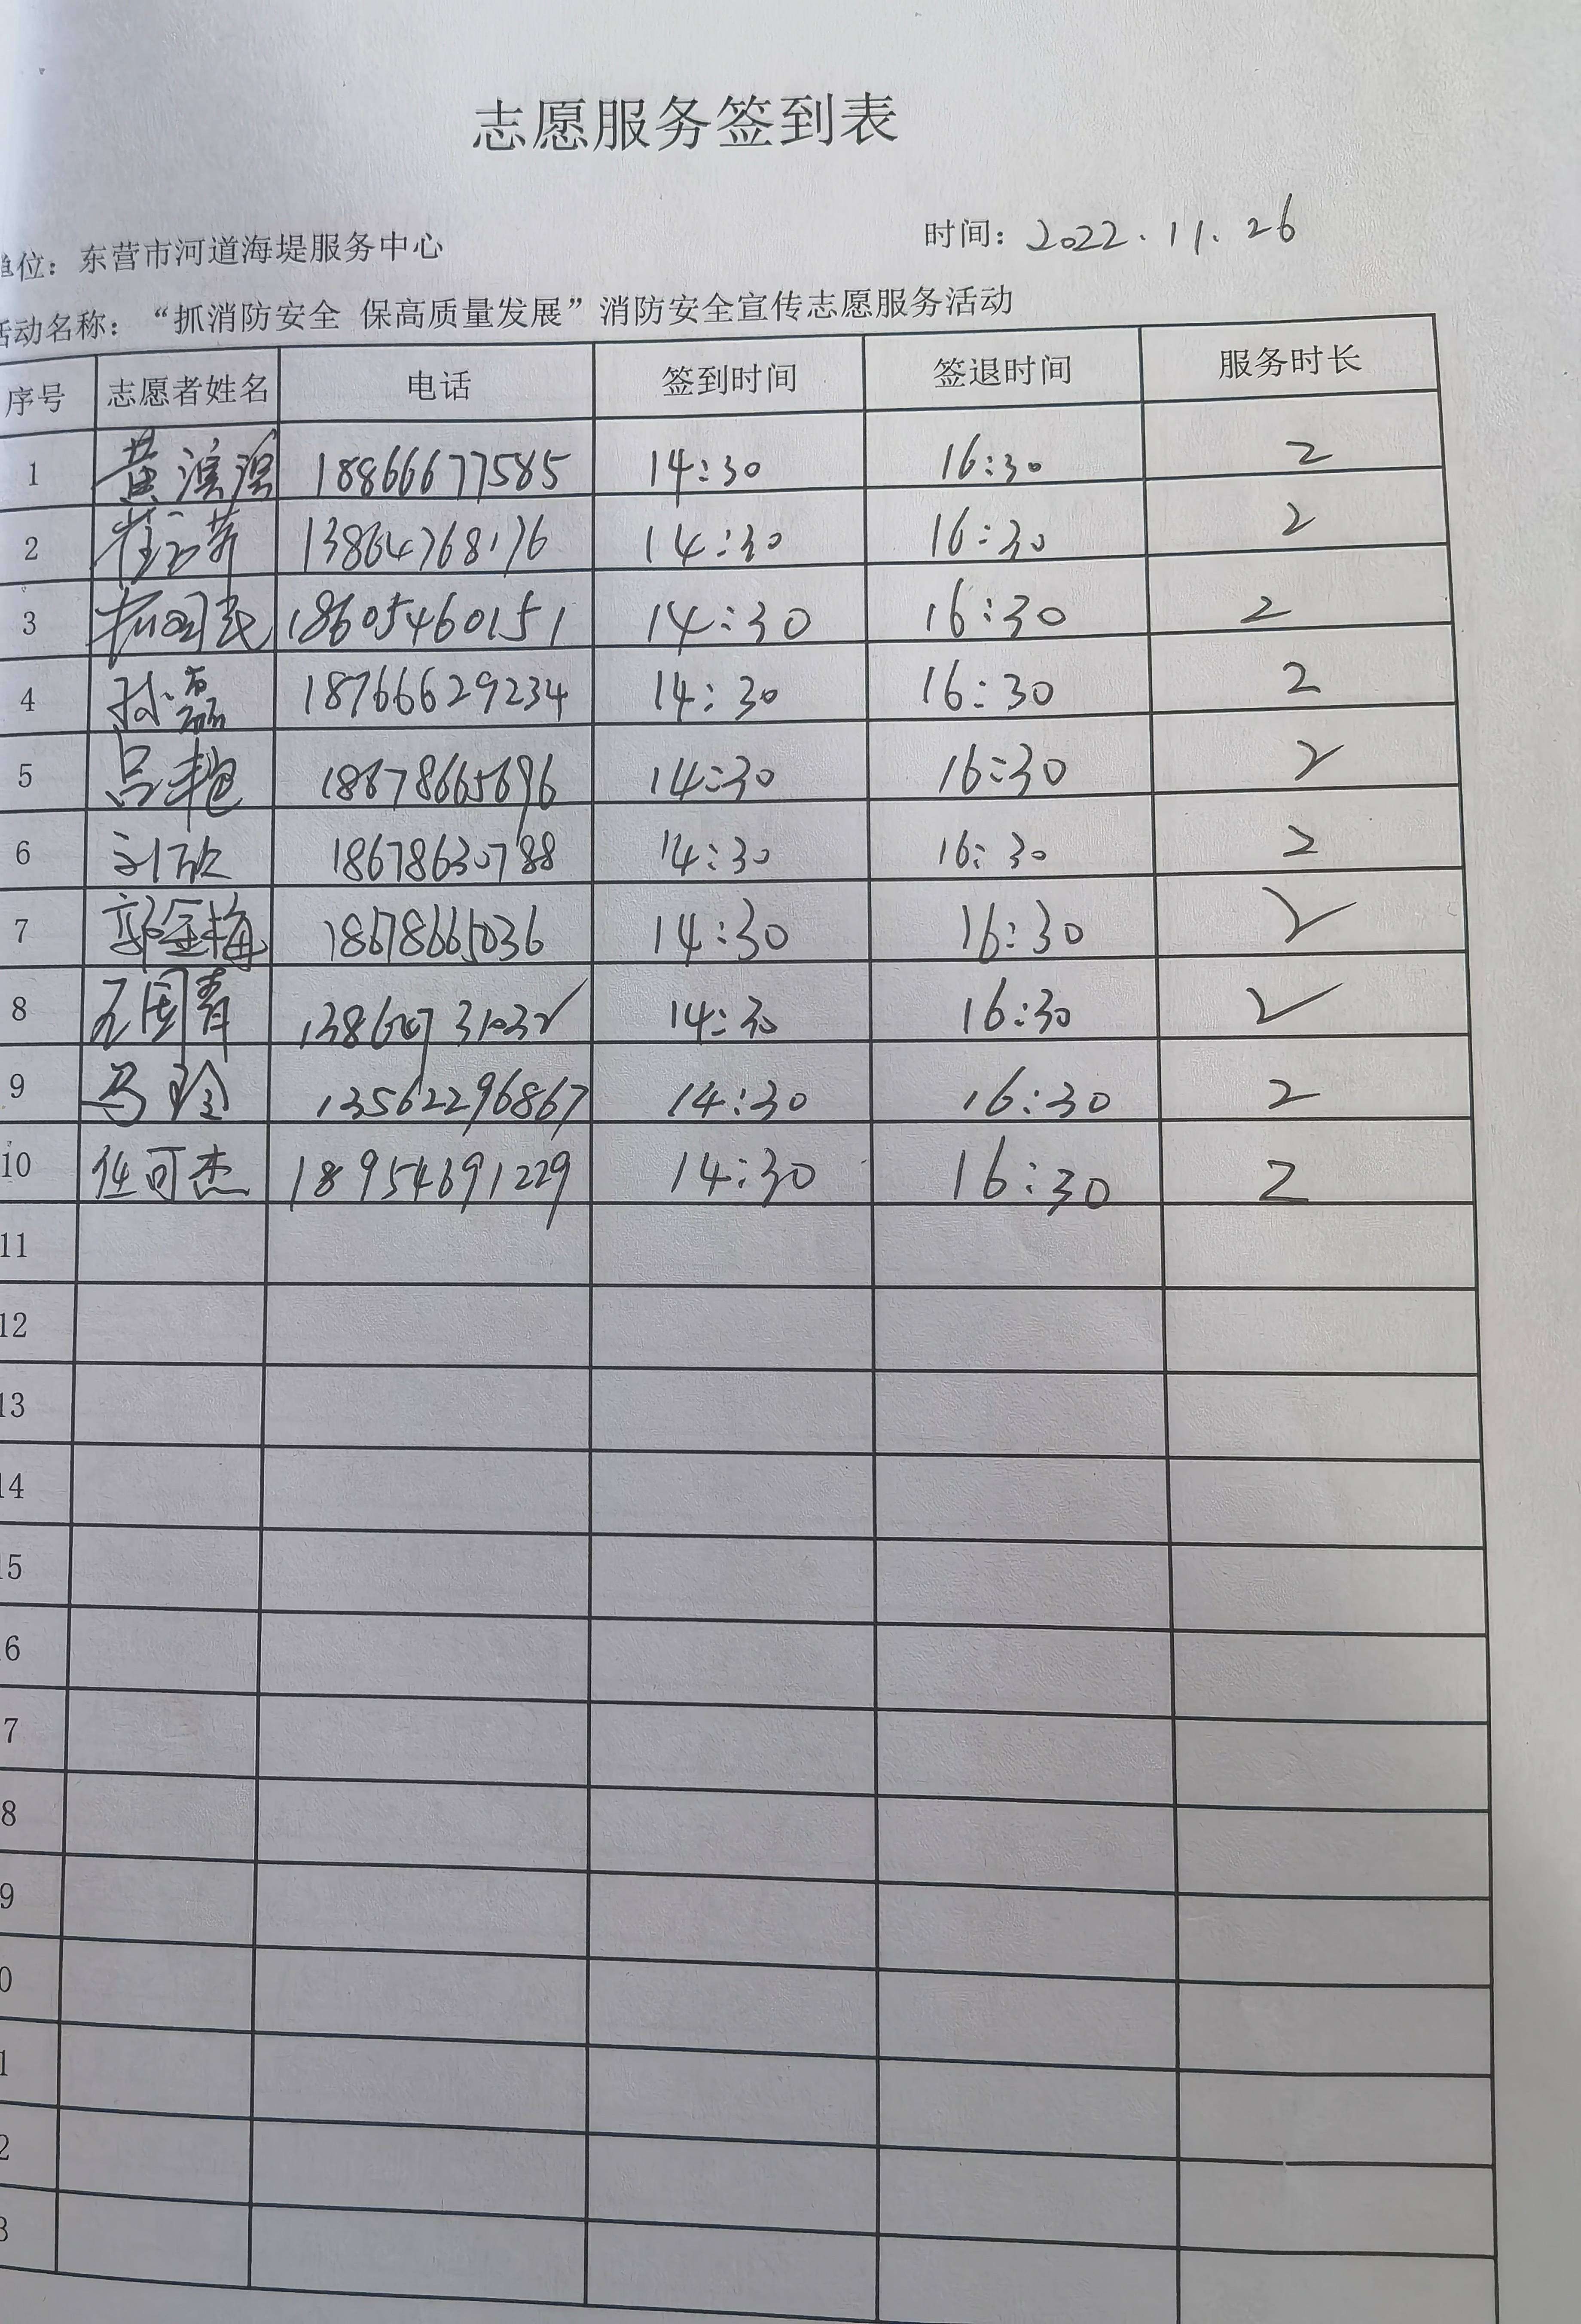 志愿服务签到表
单位：东营市河道海堤服务中心 时间：2022.11.26
活动名称：“抓消防安全 保高质量发展”消防安全宣传志愿服务活动
序号 志愿者姓名 电话 签到时间 签退时间 服务时长
1 黄滨 18866677585 14:30 16:30 2
2 崔 13864768176 14:30 16:30 2
3 18605460151 14:30 16:30 2
4 孙磊 18766629234 14:30 16:30 2
5 吕艳 18678665696 14:30 16:30 2
6 刘欣 18678630788 14:30 16:30 2
7 郭金梅 18678665036 14:30 16:30 2
8 国青 14:30 16:30 2
9 马玲 13562296867 14:30 16:30 2
10 任可杰 18954691229 14:30 16:30 2
11
12
13
14
15
6
7
8
9
0
1
2
3